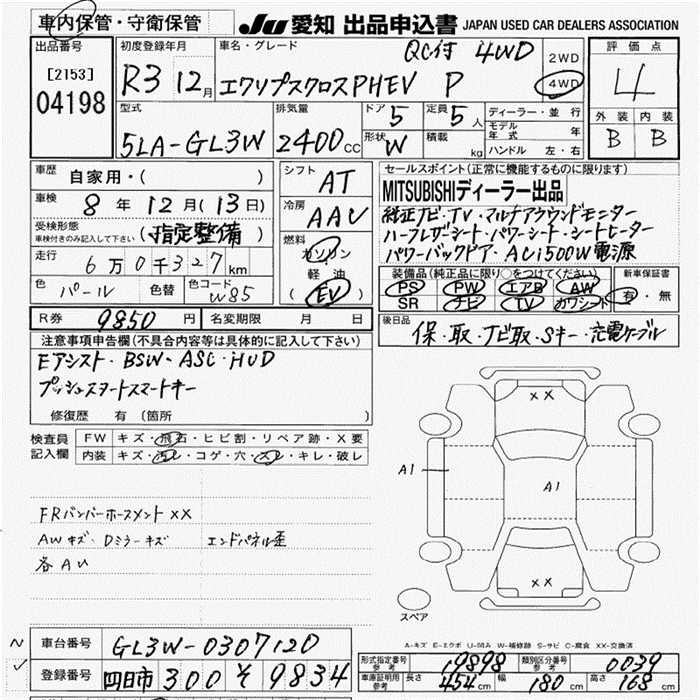 車内保管・守衛保管
JU 愛知 出品申込書 JAPAN USED CAR DEALERS ASSOCIATION
出品番号
[2153]
04198
初度登録年月
R3 12月
車名・グレード
QC付 4WD
エクリプスクロスPHEV P
2WD
4WD
評価点
4
外装 内装
B B
型式
5LA-GL3W
排気量
2400cc
ドア 5
定員 5人
形状 W
積載 kg
ディーラー・並行
モデル年式 年
ハンドル 左・右
車歴
自家用・( )
車検
8年12月(13日)
受検形態
車検付きのみ記入して下さい
(指定整備)
走行
6万0千327km
色 パール
色替
色コード W85
シフト AT
冷房 AAC
燃料
ガソリン
軽油
(EV)
セールスポイント(正常に機能するものに限ります)
MITSUBISHIディーラー出品
純正ナビ・TV・マルチアラウンドモニター
ハーフレザーシート・パワーシート・シートヒーター
パワーバックドア・AC1500W電源
装備品(純正品に限り○をつけてください)
PS PW エアB AW
SR ナビ TV カワシート
新車保証書
有・無
R券 9850円
名変期限 月 日
後日品
保・取・ナビ取・Sキー・充電ケーブル
注意事項申告欄(不具合内容等は具体的に記入して下さい)
Eアシスト・BSW・ASC・HUD
プッシュスタートスマートキー
修復歴 有(箇所 )
検査員記入欄
FW キズ・飛石・ヒビ割・リペア跡・X要
内装 キズ・汚レ・コゲ・穴・スレ・キレ・破レ
FRバンパーホースメントXX
AWキズ・Dミラーキズ エンドパネル歪
各AU
XX
A1
A1
XX
スペア
A-キズ E-エクボ U-凹み W-補修跡 S-サビ C-腐食 XX-交換済
車台番号 GL3W-0307120
登録番号 四日市 300 そ 9834
型式指定番号 参考 19898
類別区分番号 参考 0039
車庫証明用 参考 長さ 454cm 幅 180cm 高さ 168cm